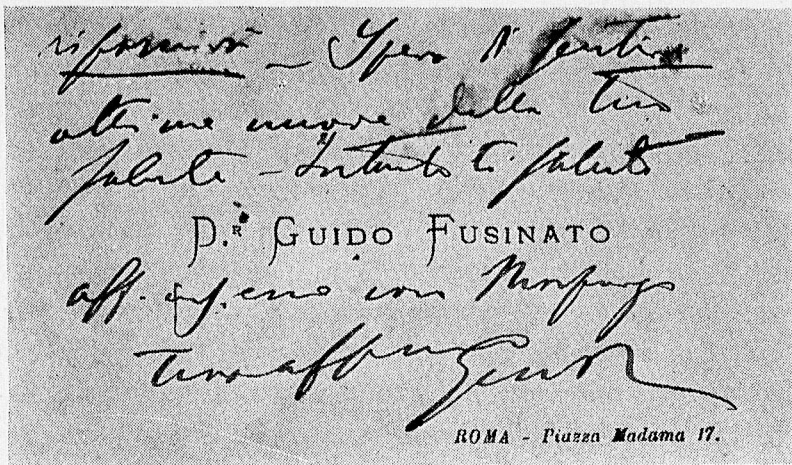 Spero di sentire
ottime nuove della tua
salute - Intanto ti saluto
D.R GUIDO FUSINATO
aff. con Morpurgo
tuo aff Guido
ROMA - Piazza Madama 17.